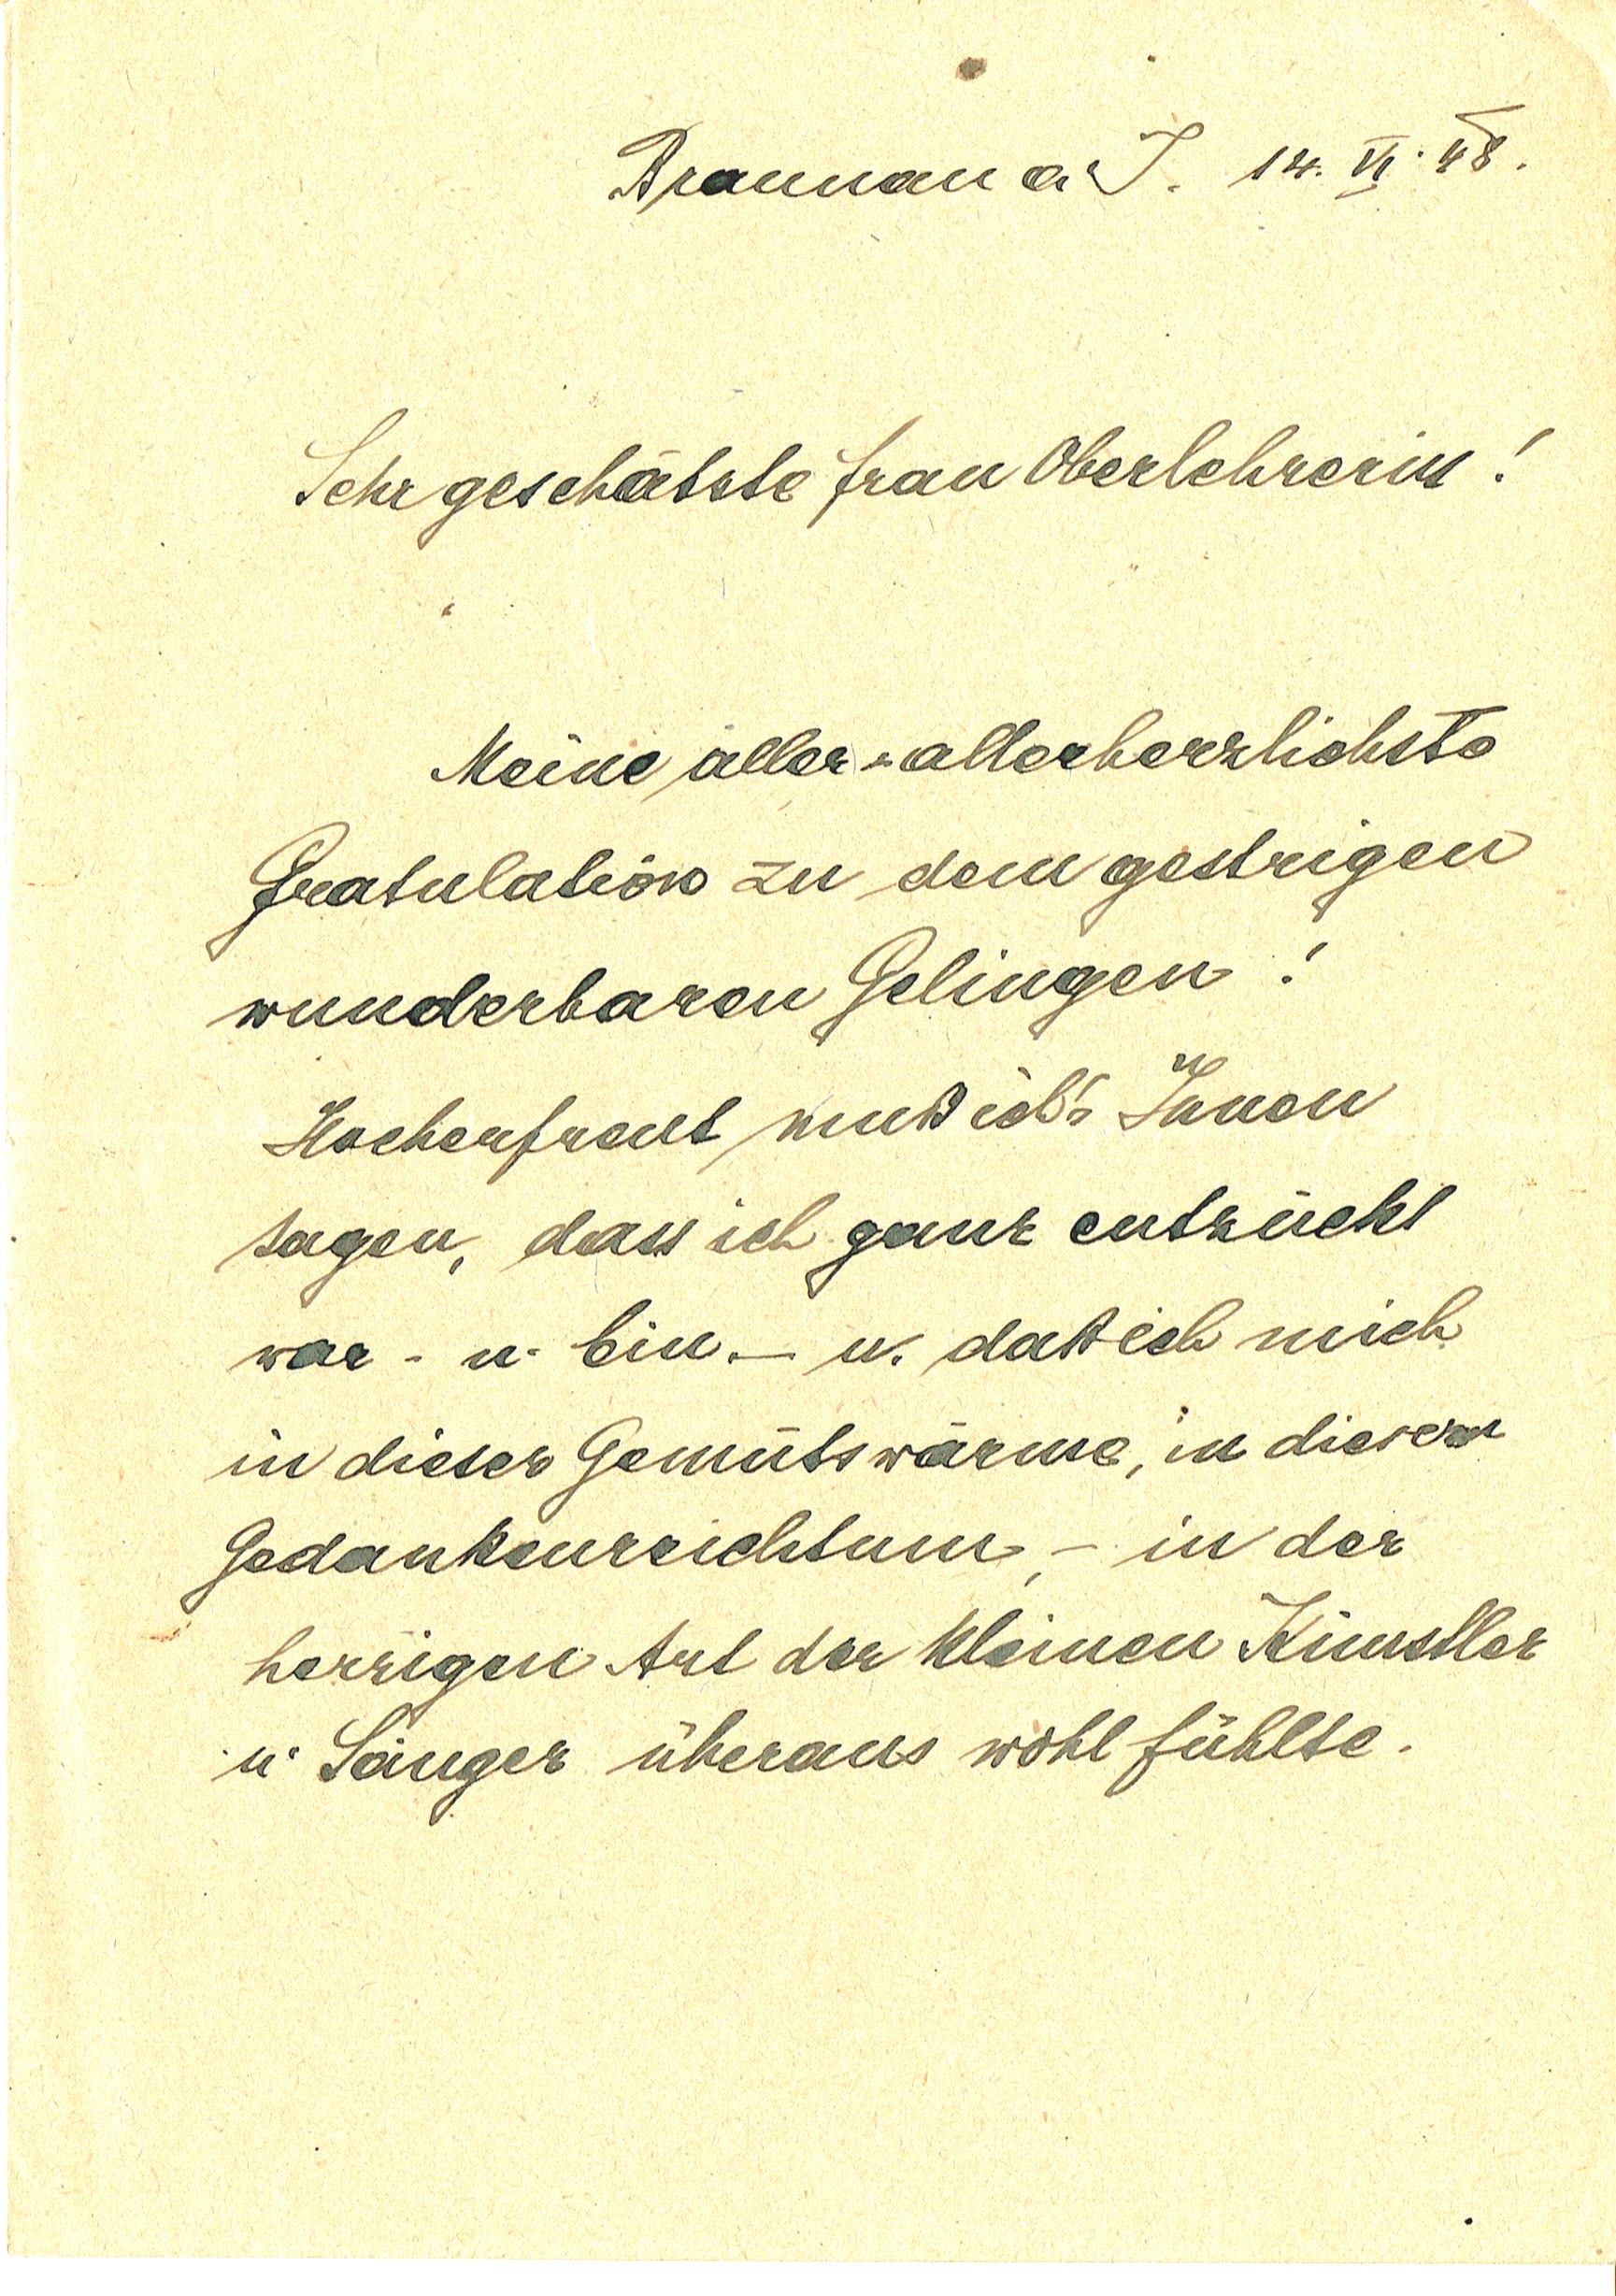 Braunau a. I. 14. VI. 48.
Sehr geschätzte Frau Oberlehrerin!
Meine aller-allerherzlichste
Gratulation zu dem gestrigen
wunderbaren Gelingen!
Hocherfreut muß ich's Ihnen
sagen, dass ich ganz entzückt
war - u. bin. — u. daß ich mich
in dieser Gemütswärme, in diesem
Gedankenreichtum, - in der
herzigen Art der kleinen Künstler
u. Sänger überaus wohl fühlte.